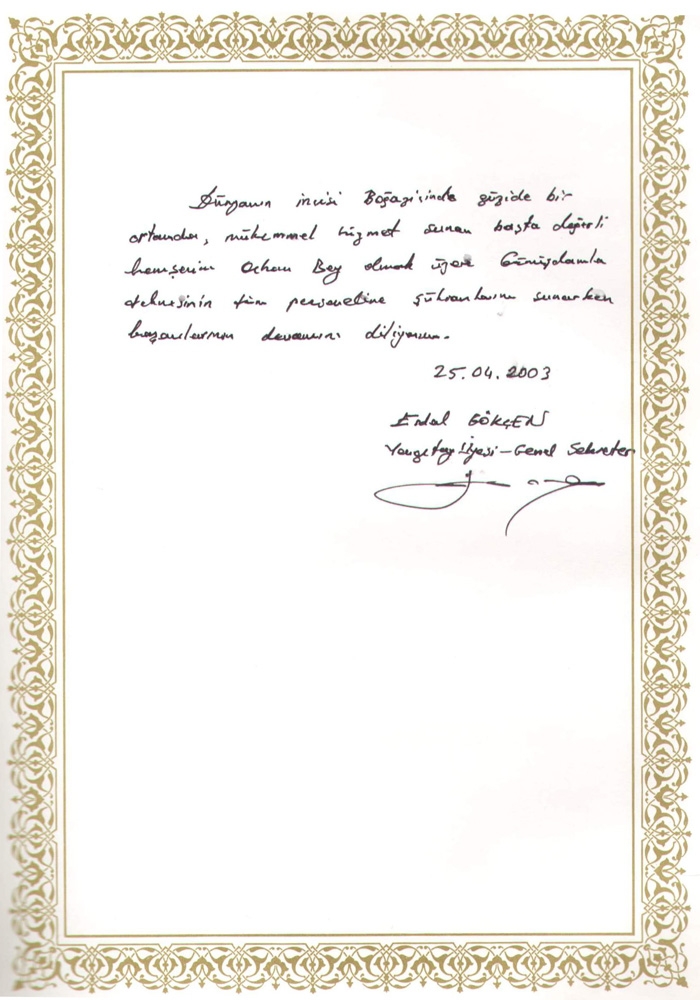 Dünyanın incisi Boğaziçinde güzide bir
ortamda, mükemmel hizmet sunan başta değerli
hemşerim Orhan Bey olmak üzere Gümüşdamla
teknesinin tüm personeline şükranlarımı sunarken
başarılarının devamını diliyorum.
25.04.2003
Erdal GÖKÇEN
Yargıtay Üyesi - Genel Sekreter